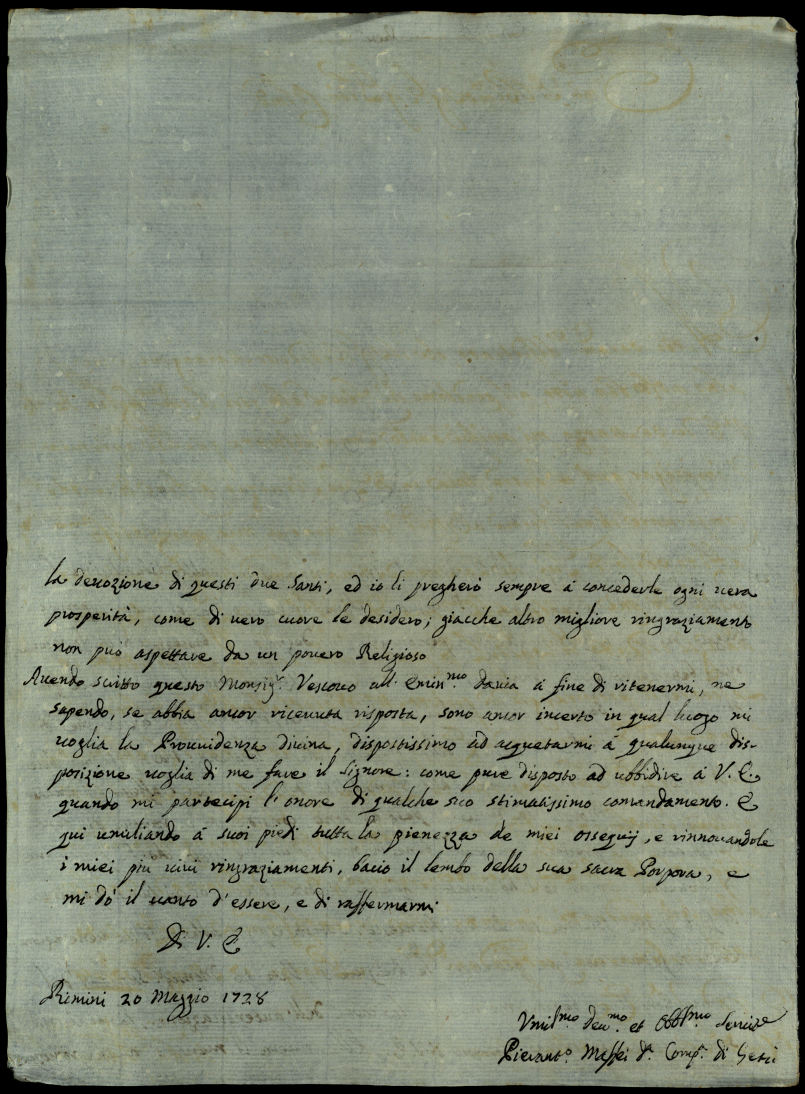 la devozione di questi due Santi, ed io li pregherò sempre á concederle ogni vera
prosperità, come di vero cuore le desidero; giacche altro migliore ringraziamento
non può aspettare da un povero Religioso
Avendo scritto questo Monsigʳ. Vescovo all' Eminᵐᵒ Davia á fine di ritenermi, ne
sapendo, se abbia ancor ricevuta risposta, sono ancor incerto in qual luogo mi
voglia la Provvidenza divina, dispostissimo ad acquetarmi á qualunque dis-
posizione voglia di me fare il Signore: come pure disposto ad ubbidire á V. E.
quando mi partecipi l'onore di qualche suo stimatissimo comandamento. E
qui umiliando á suoi piedi tutta la pienezza de miei ossequij, e rinnovandole
i miei più vivi ringraziamenti, bacio il lembo della sua sacra Porpora, e
mi dò il vanto d'essere, e di raffermarmi
Di V. E
Rimini 20 Maggio 1728
Umilᵐᵒ. Devᵐᵒ. et Obblᵐᵒ Servire
Pierantᵒ. Messei dª. Compª. di Gesù